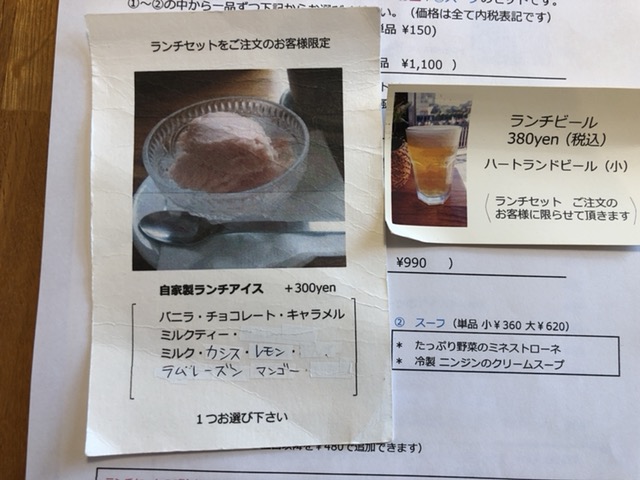 ①～②の中から一品ずつ下記からお選び
い。（価格は全て内税表記です）
単品 ¥150）
品 ¥1,100 ）
¥990 ）
② スープ（単品 小￥360 大￥620）
* たっぷり野菜のミネストローネ
* 冷製 ニンジンのクリームスープ
￥480で追加できます）
ランチセットをご注文のお客様限定
自家製ランチアイス +300yen
バニラ・チョコレート・キャラメル
ミルクティー・
ミルク・カシス・レモン・
ラムレーズン マンゴー・
１つお選び下さい
ランチビール
380yen（税込）
ハートランドビール（小）
（ランチセット ご注文の
お客様に限らせて頂きます）